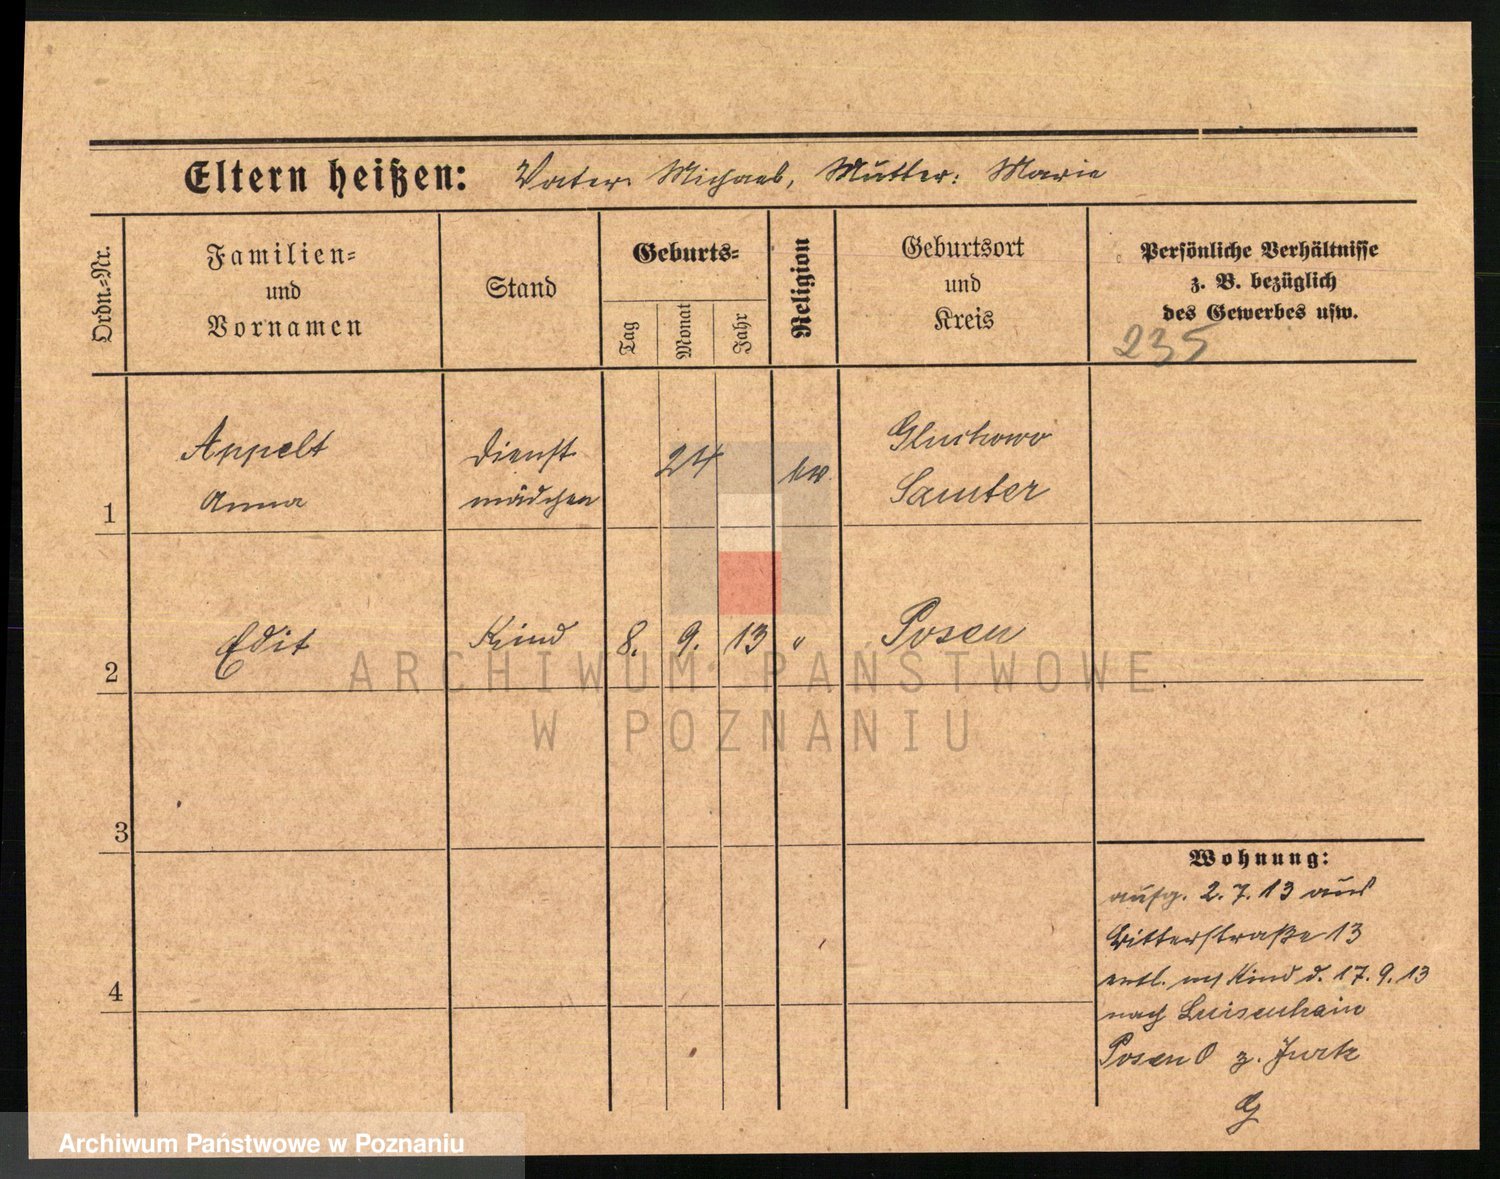 Eltern heißen: Vater: Michael, Mutter: Marie
Ordn.-Nr.
Familien=
und
Vornamen
Stand
Geburts=
Tag
Monat
Jahr
Religion
Geburtsort
und
Kreis
Persönliche Verhältnisse
z. B. bezüglich
des Gewerbes usw.
235
1
Appelt
Anna
Dienst
mädchen
24
ev.
Gluchowo
Samter
2
Edit
Kind
8. 9. 13
"
Posen
3
4
Wohnung:
aufg. 2. 7. 13 aus
Ritterstraße 13
entl. Kind d. 17. 9. 13
nach Luisenhain
Posen O z.
ARCHIWUM PAŃSTWOWE
W POZNANIU
Archiwum Państwowe w Poznaniu